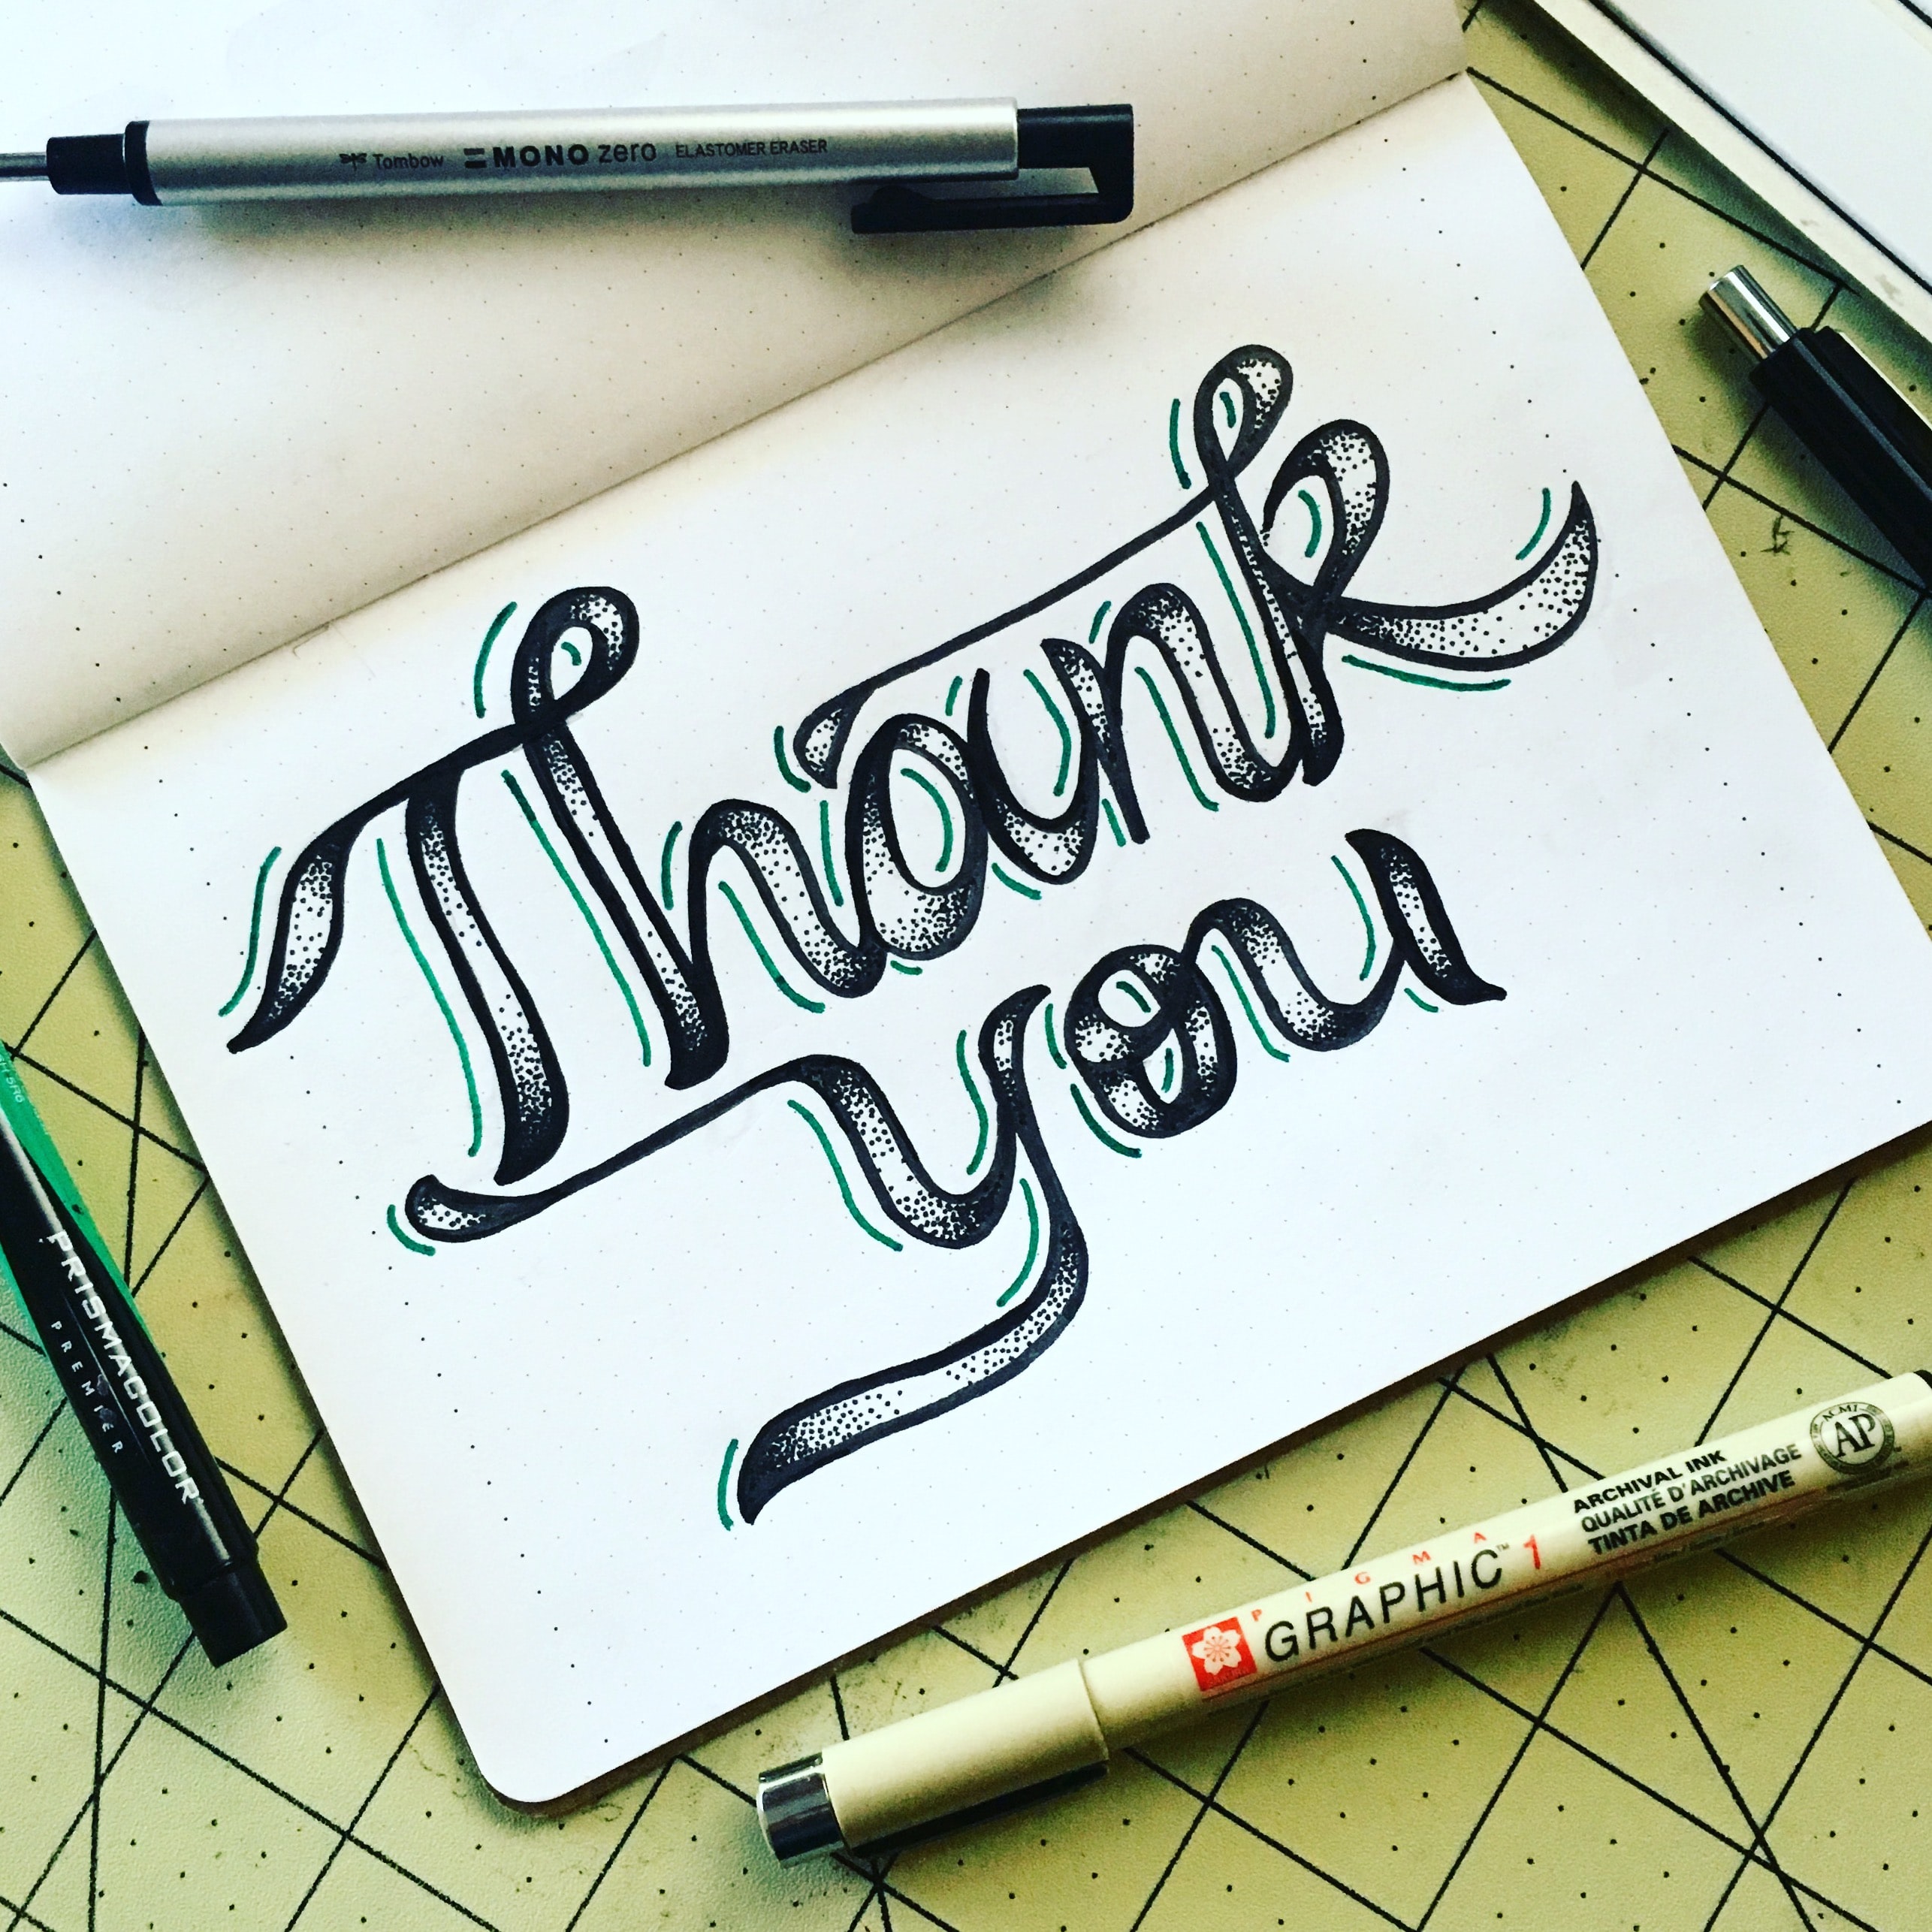 Tombow MONO zero ELASTOMER ERASER
Thank
you
PRISMACOLOR
PREMIER
PIGMA
GRAPHIC™ 1
ARCHIVAL INK
QUALITÉ D'ARCHIVAGE
TINTA DE ARCHIVE
ACMI
AP